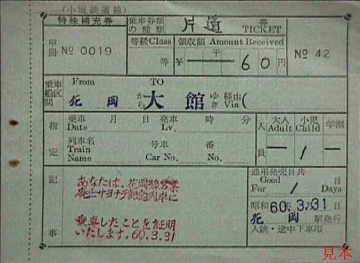 (小坂鉄道線)
特殊補充券
乗車券類の種類
片道
券
TICKET
甲
No 0019
等級Class
等
領収額 Amount Received
¥ 60 円
No 42
乗車船区間
From
花岡
から
TO
大館
ゆき
経由
Via (
指定
乗車 月 日 発車 時 分
Date Lv.
列車名 号車 番
Train Name Car No. No.
人員
大人 Adult
小児 Child
学割
1
記事
あなたは、花岡線営業
廃止サヨナラ記念列車に
乗車したことを証明
いたします。60.3.31
通用発売日共
Good For 1 日 Days
昭和 60.3.31
花岡 駅発行
入鋏・途中下車印
見本